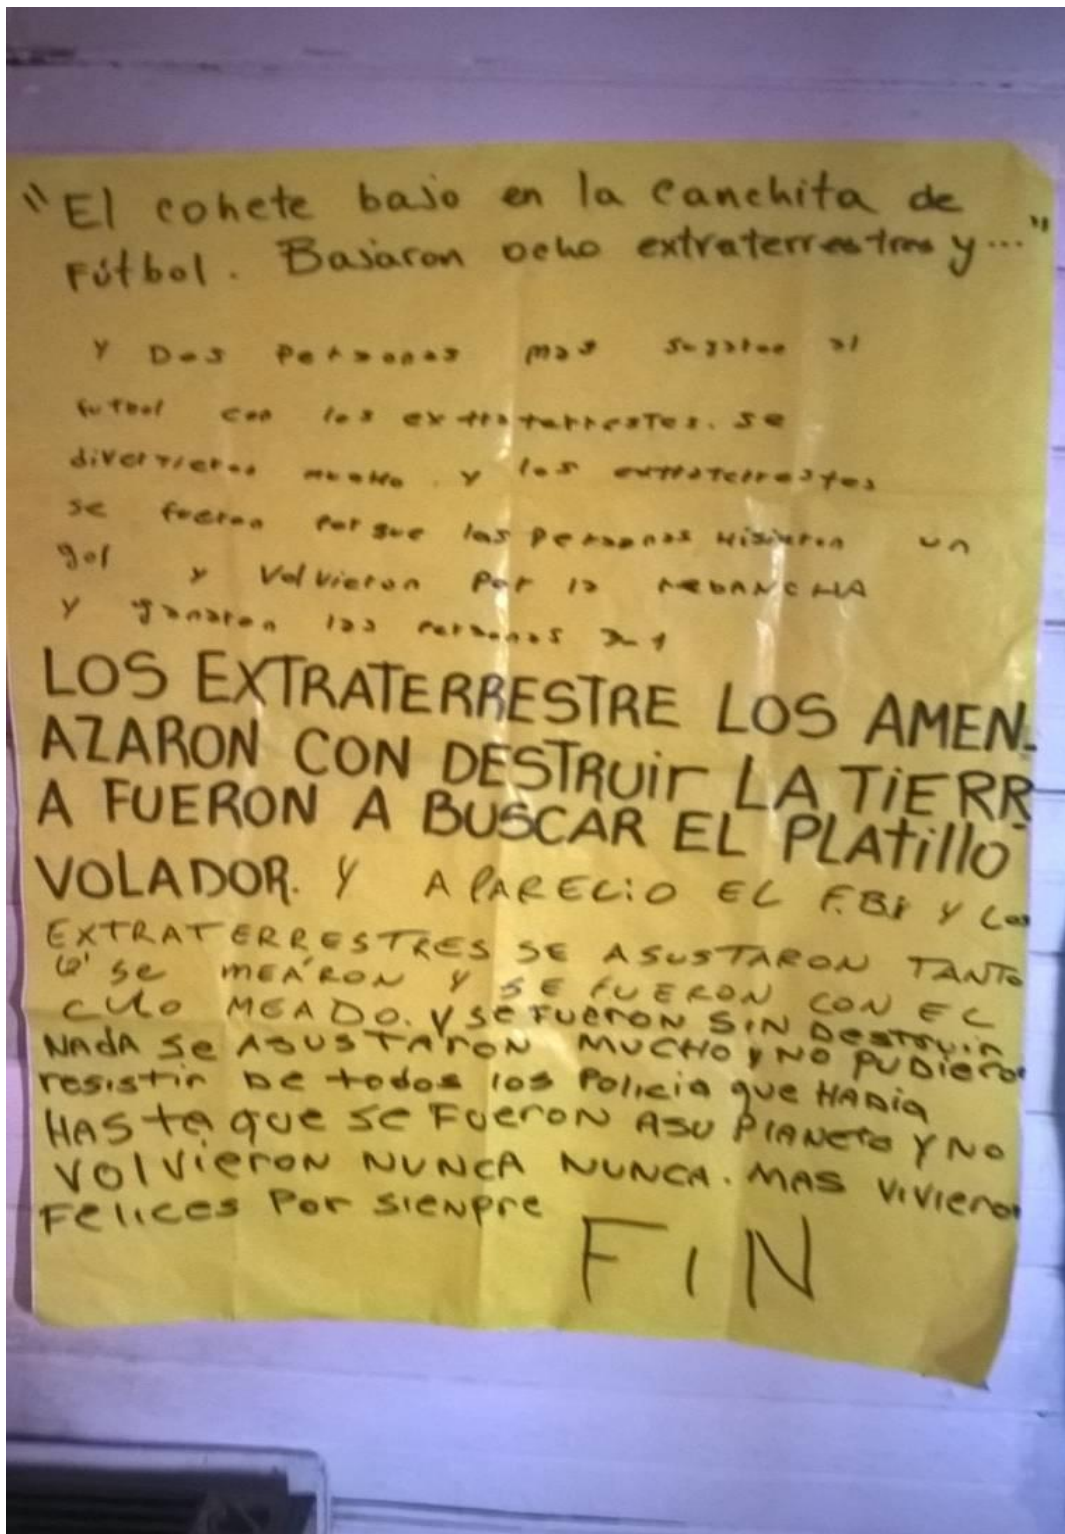 "El cohete bajo en la canchita de
Fútbol. Bajaron ocho extraterrestres y..."
Y Dos Personas mas jugaron al
futbol con los extraterrestes. se
divertieron mucho. y los extraterrestes
se fueron Por que las personas Hisieron un
gol y Volvieron Por la REbANCHA
Y ganaron las Personas 2-1
LOS EXTRATERRESTRE LOS AMEN-
AZARON CON DESTRUir LA TiERR
A FUERON A BUSCAR EL PLAtillo
VOLADOR. Y APARECiO EL F.Bi Y Los
EXTRATERRESTRES SE ASUSTARON TANTO
Q' se MEARON Y SE FUERON CON EL
CULO MEADO. Y Se FUERON SIN Destruir
NAdA Se ASUSTARON MUCHO Y NO PUDieron
resistir De todos los Policia que HABia
HASta que SE FUERON ASU PlANeta Y NO
VOlVieron NUNCA NUNCA. MAS Vivieron
Felices Por SieNpre
FIN